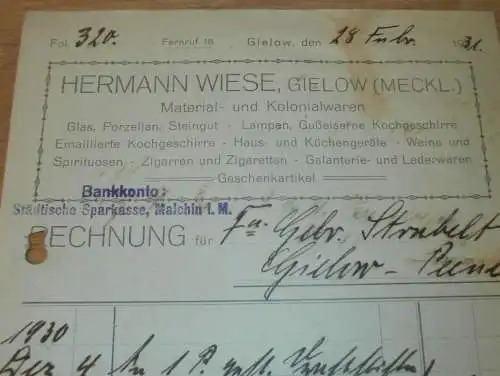 Fol. 320. Fernruf 18 Gielow, den 28 Febr. 1931.
HERMANN WIESE, GIELOW (MECKL.)
Material- und Kolonialwaren
Glas, Porzellan, Steingut - Lampen, Gußeiserne Kochgeschirre
Emaillierte Kochgeschirre - Haus- und Küchengeräte - Weine und
Spirituosen - Zigarren und Zigaretten - Galanterie- und Lederwaren
Geschenkartikel
Bankkonto:
Städtische Sparkasse, Malchin i. M.
RECHNUNG für Fa. Gebr. Strübelt
Gielow-Peene
1930
Dez 4 An 1 P.